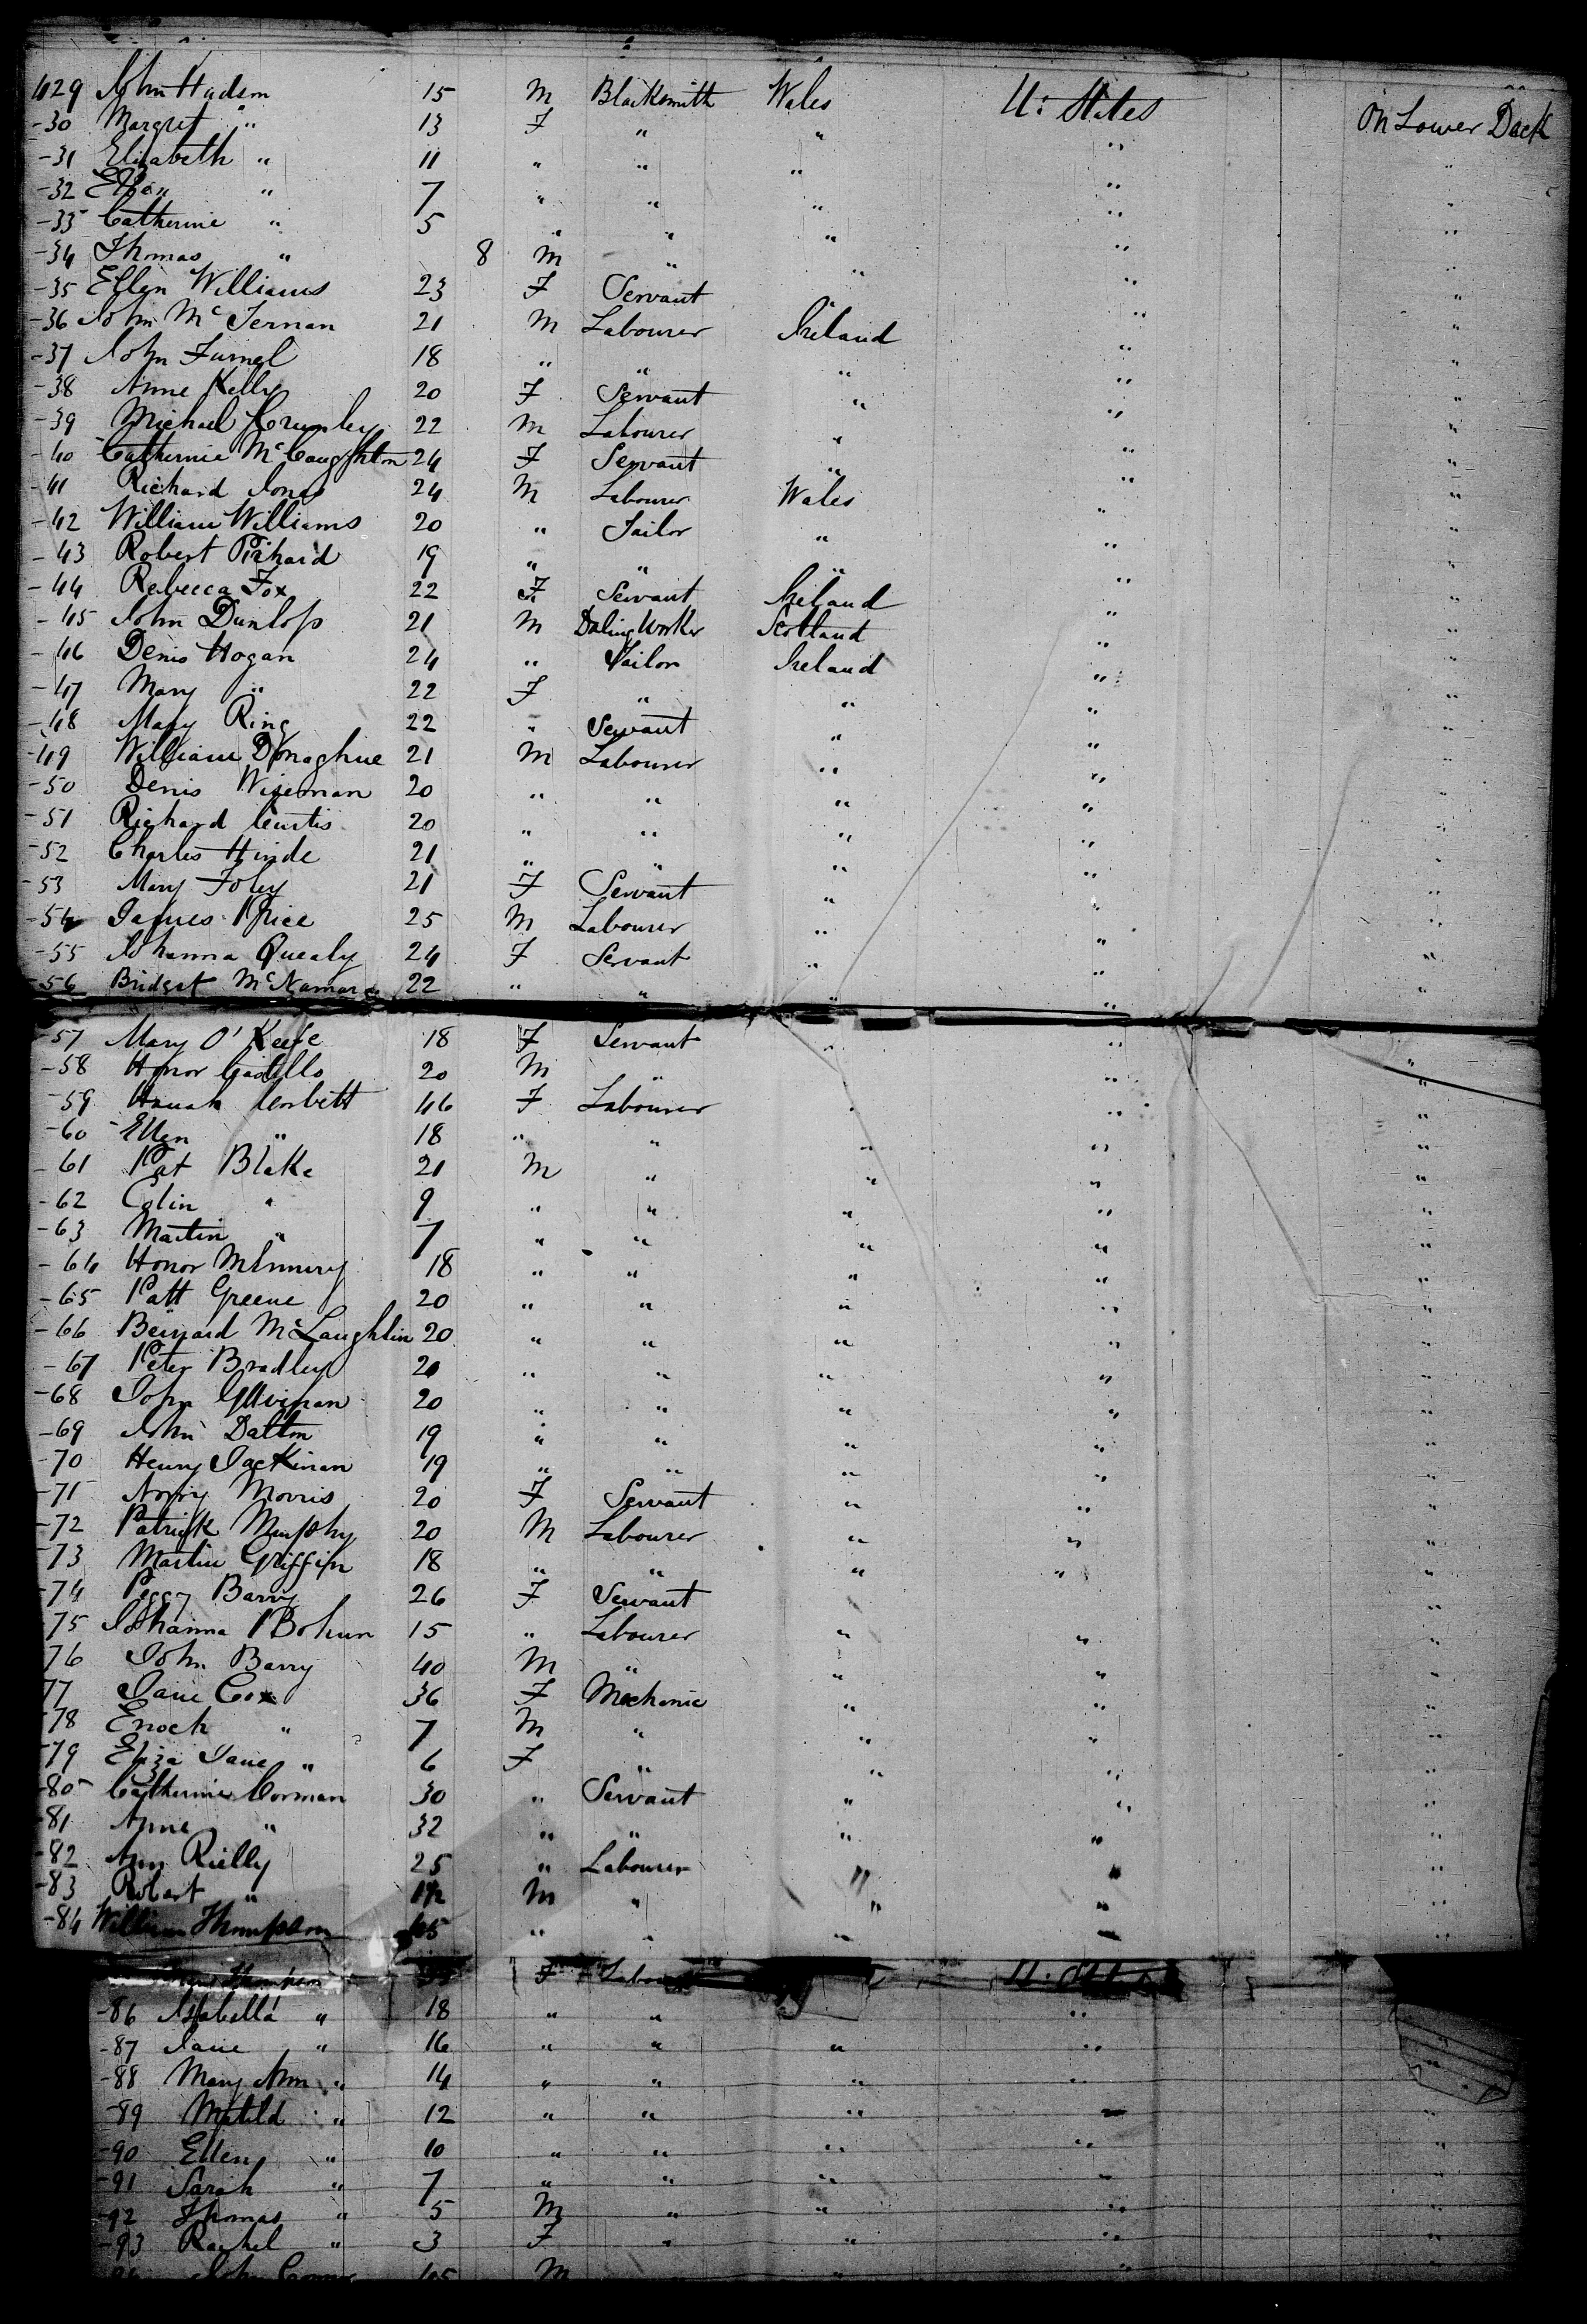 429 John Hudson 15 M Blacksmith Wales U: States On Lower Deck
-30 Margret " 13 F " " " "
-31 Elizabeth " 11 " " " " "
-32 Ellen " 7 " " " " "
-33 Catherine " 5 " " " " "
-34 Thomas " 8 M " " " "
-35 Ellen Williams 23 F Servant " " "
-36 John McTernan 21 M Labourer Ireland " "
-37 John 18 " " " " "
-38 Anne Kelly 20 F Servant " " "
-39 Michael Crumley 22 M Labourer " " "
-40 Catherine McCaughton 24 F Servant " " "
-41 Richard Jones 24 M Labourer Wales " "
-42 William Williams 20 " Tailor " " "
-43 Robert Pichard 19 " " " " "
-44 Rebecca Fox 22 F Servant Ireland " "
-45 John Dunlop 21 M Worker Scotland " "
-46 Denis Hogan 24 " Tailor Ireland " "
-47 Mary " 22 F " " " "
-48 Mary Ring 22 " Servant " " "
-49 William Donaghue 21 M Labourer " " "
-50 Denis Wiseman 20 " " " " "
-51 Richard Curtis 20 " " " " "
-52 Charles Hinde 21 " " " " "
-53 Mary Foley 21 F Servant " " "
-54 James Price 25 M Labourer " " "
-55 Johanna Quealy 24 F Servant " " "
-56 Bridget McNamara 22 " " " " "
-57 Mary O'Keefe 18 F Servant " " "
-58 Honor Costello 20 M " " "
-59 Hanah Corbett 46 F Labourer " " "
-60 Ellen " 18 " " " " "
-61 Pat Blake 21 M " " " "
-62 Colin " 9 " " " " "
-63 Martin " 7 " " " " "
-64 Honor McInnery 18 " " " " "
-65 Patt Greene 20 " " " " "
-66 Bernard McLaughlin 20 " " " " "
-67 Peter Bradley 20 " " " " "
-68 John 20 " " " " "
-69 John Dalton 19 " " " " "
-70 Henry Jackman 19 " " " " "
-71 Norry Morris 20 F Servant " " "
-72 Patrick Murphy 20 M Labourer " " "
-73 Martin Griffin 18 " " " " "
-74 Peggy Barry 26 F Servant "
-75 Johanna Bohun 15 " Labourer " " "
76 John Barry 40 M " " " "
77 Jane Cox 36 F Mechanic " " "
-78 Enoch " 7 M " " " "
-79 Eliza Jane " 6 F " " " "
-80 Catherine Corman 30 " Servant " " "
-81 Anne " 32 " " " " "
-82 Ann Rielly 25 " Labourer " " "
-83 Robert " M " " " "
-84 William Thompson 45 " " " " "
Thompson F Labourer U. States
-86 Isabella " 18 " " "
-87 Jane " 16 " " " " "
-88 Mary Ann " 14 " " " " "
-89 Matild " 12 " " " " "
-90 Ellen " 10 " " " " "
-91 Sarah " 7 " " " " "
-92 Thomas " 5 M " " " "
-93 Rachel " 3 F " " " "
John 45 M " "